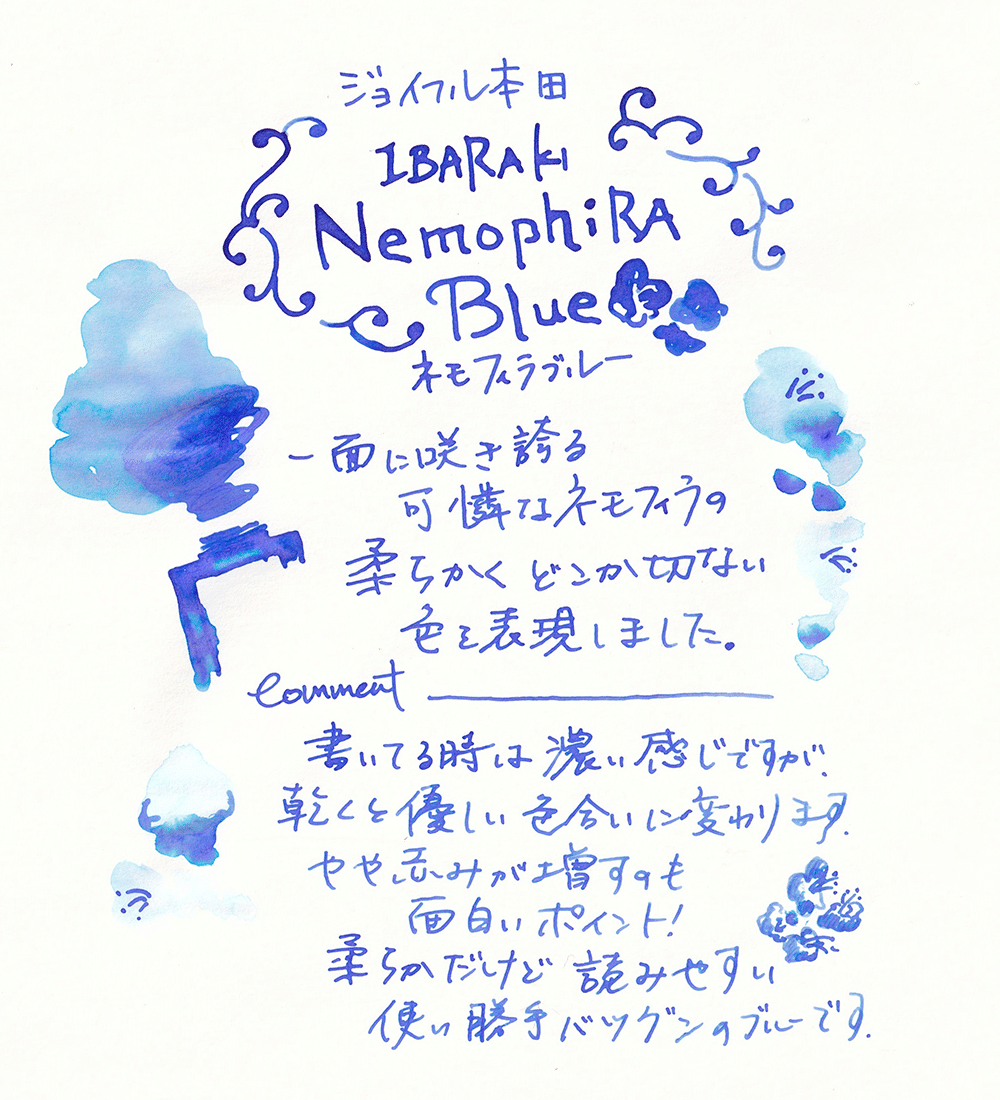 ジョイフル本田
IBARAKI
NemophiRA
Blue
ネモフィラブルー
一面に咲き誇る
可憐なネモフィラの
柔らかくどこか切ない
色を表現しました。
Comment
書いてる時は濃い感じですが、
乾くと優しい色合いに変わります。
やや赤みが増すのも
面白いポイント!
柔らかだけど読みやすい
使い勝手バツグンのブルーです。